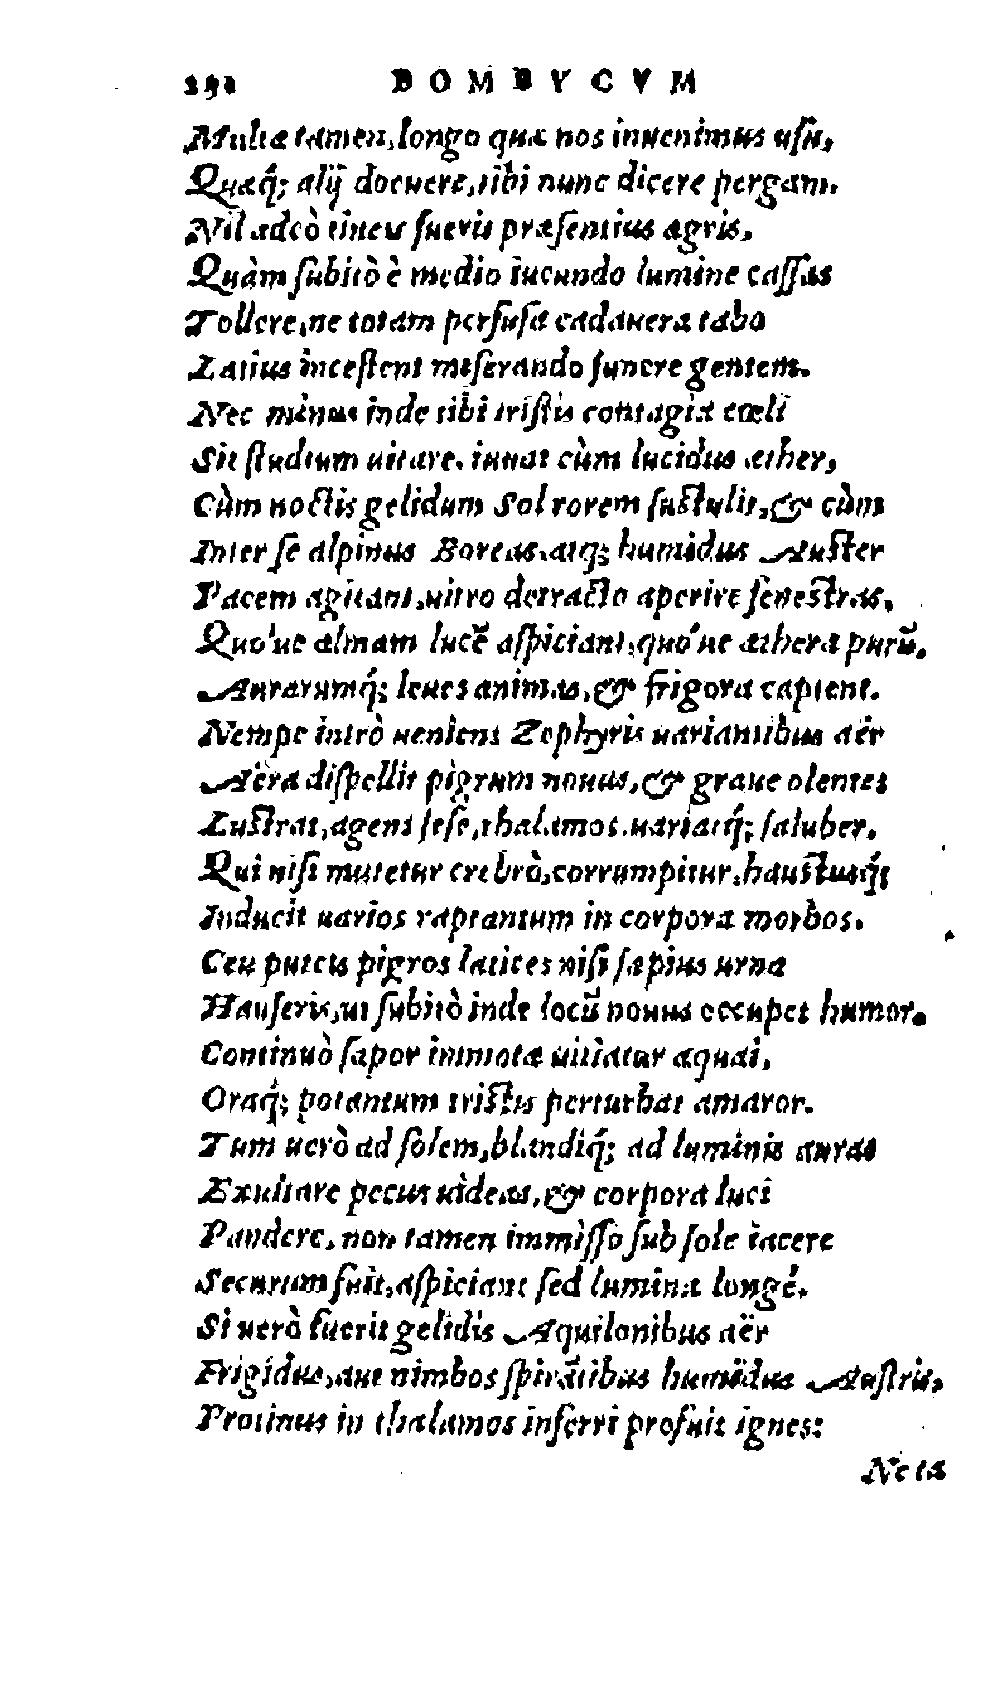 292 BOMBYCVM
Multa tamen, longo quæ nos inuenimus usu,
Quæq́; alij docuere, tibi nunc dicere pergam.
Nil adeò tineis fueris præsentius ægris,
Quàm subitò è medio iucundo lumine cassas
Tollere, ne totam perfusa cadauera tabo
Latius incestent miserando funere gentem.
Nec minus inde tibi tristis contagia cœli
Sit studium uitare. iuuat cùm lucidus æther,
Cùm noctis gelidum Sol rorem sustulit, & cùm
Inter se alpinus Boreas, atq; humidus Auster
Pacem agitant, uitro detracto aperire fenestras,
Quo'ue almam lucẽ aspiciant, quo'ue æthera purũ,
Aurarumq́; leues animas, & frigora captent.
Nempe intrò ueniens Zephyris uariantibus aër
Aëra dispellit pigrum nouus, & graue olentes
Lustrat, agens sese, thalamos, uariatq́; saluber.
Qui nisi mutetur crebrò, corrumpitur, haustusq́;
Inducit uarios raptantum in corpora morbos.
Ceu puteis pigros latices nisi sæpius urna
Hauseris, ut subitò inde locũ nouus occupet humor.
Continuò sapor immotæ uitiatur aquai,
Oraq́; potantum tristis perturbat amaror.
Tum uerò ad solem, blandiq́; ad luminis auras
Exultare pecus uideas, & corpora luci
Pandere, non tamen immisso sub sole iacere
Securum fuit, aspiciant sed lumina longè.
Si uerò fuerit gelidis Aquilonibus aër
Frigidus, aut nimbos spirãtibus humidus Austris,
Protinus in thalamos inferri profuit ignes:
Ne ta